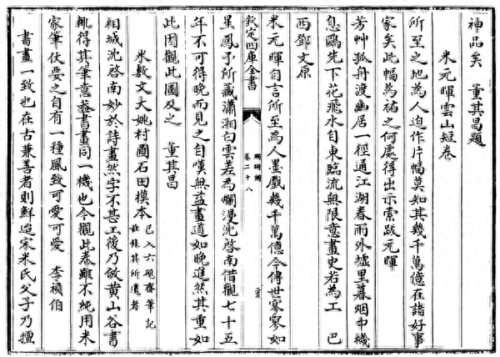 神品矣　董其昌題
米元暉雲山短卷
所至之地為人迫作片幅莫知其幾千萬億在諸好事
家矣此幅為祐之何處得出示索跋元暉
芳艸孤舟漫幽居一徑通江湖春雨外墟里暮烟中機
息鷗先下花飛水自東臨流無限意畫史若為工　巴
西鄧文原
米元暉自言所至為人墨戲幾千萬億今傳世寥寥如
欽定四庫全書
珊瑚網
卷二十八
星鳳予所藏瀟湘白雲差為爛漫沈啓南借觀七十五
年不可得晚而見之自嘆無益畫道如晚進然其重如
此因觀此圖及之　董其昌
米敷文大姚村圖石田模本
已入六硯齋筆記
兹錄其所遺者
相城沈啓南妙於詩畫然字不甚工後乃倣黄山谷書
輒得其筆意葢書畫同一機也今觀此卷雖不純用米
家筆伏要之自有一種風致可愛可愛　李禎伯
書畫一致也在古兼善者則鮮迨宋米氏父子乃擅